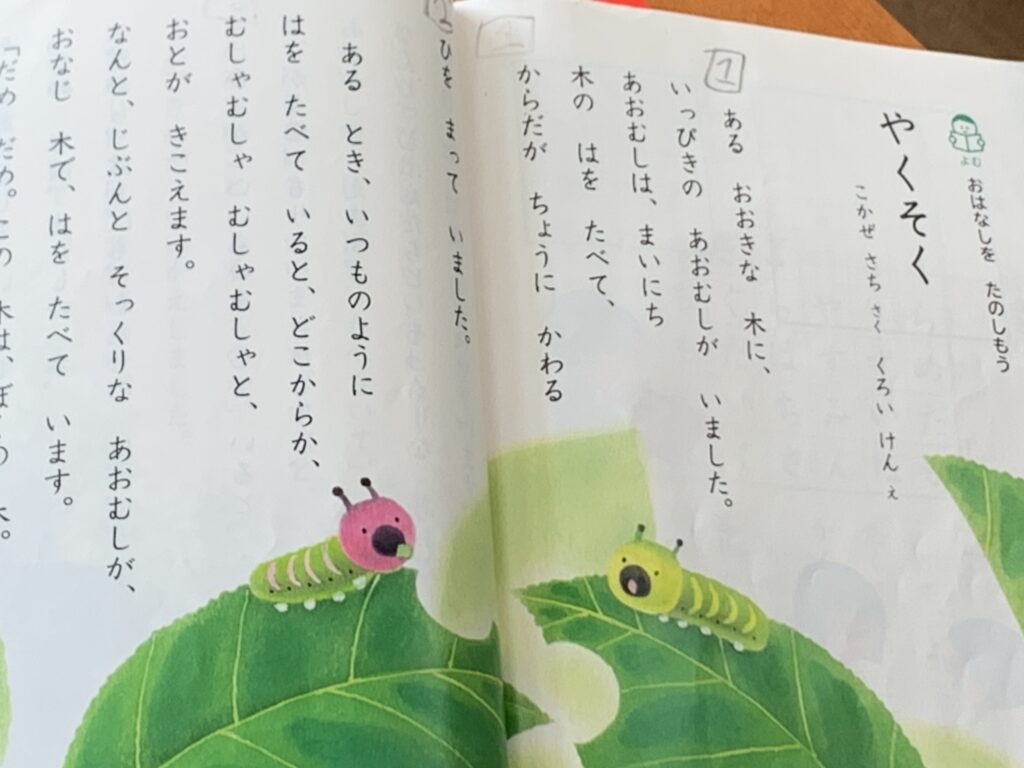 よむ
おはなしを たのしもう
やくそく
こかぜ さち さく くろい けん え
1
ある おおきな 木に、
いっぴきの あおむしが いました。
あおむしは、まいにち
木の はを たべて、
からだが ちょうに かわる
ひを まって いました。
2
ある とき、いつものように
はを たべて いると、どこからか、
むしゃむしゃ むしゃむしゃと、
おとが きこえます。
なんと、じぶんと そっくりな あおむしが、
おなじ 木で、はを たべて います。
「だめ だめ。この 木は、
木。